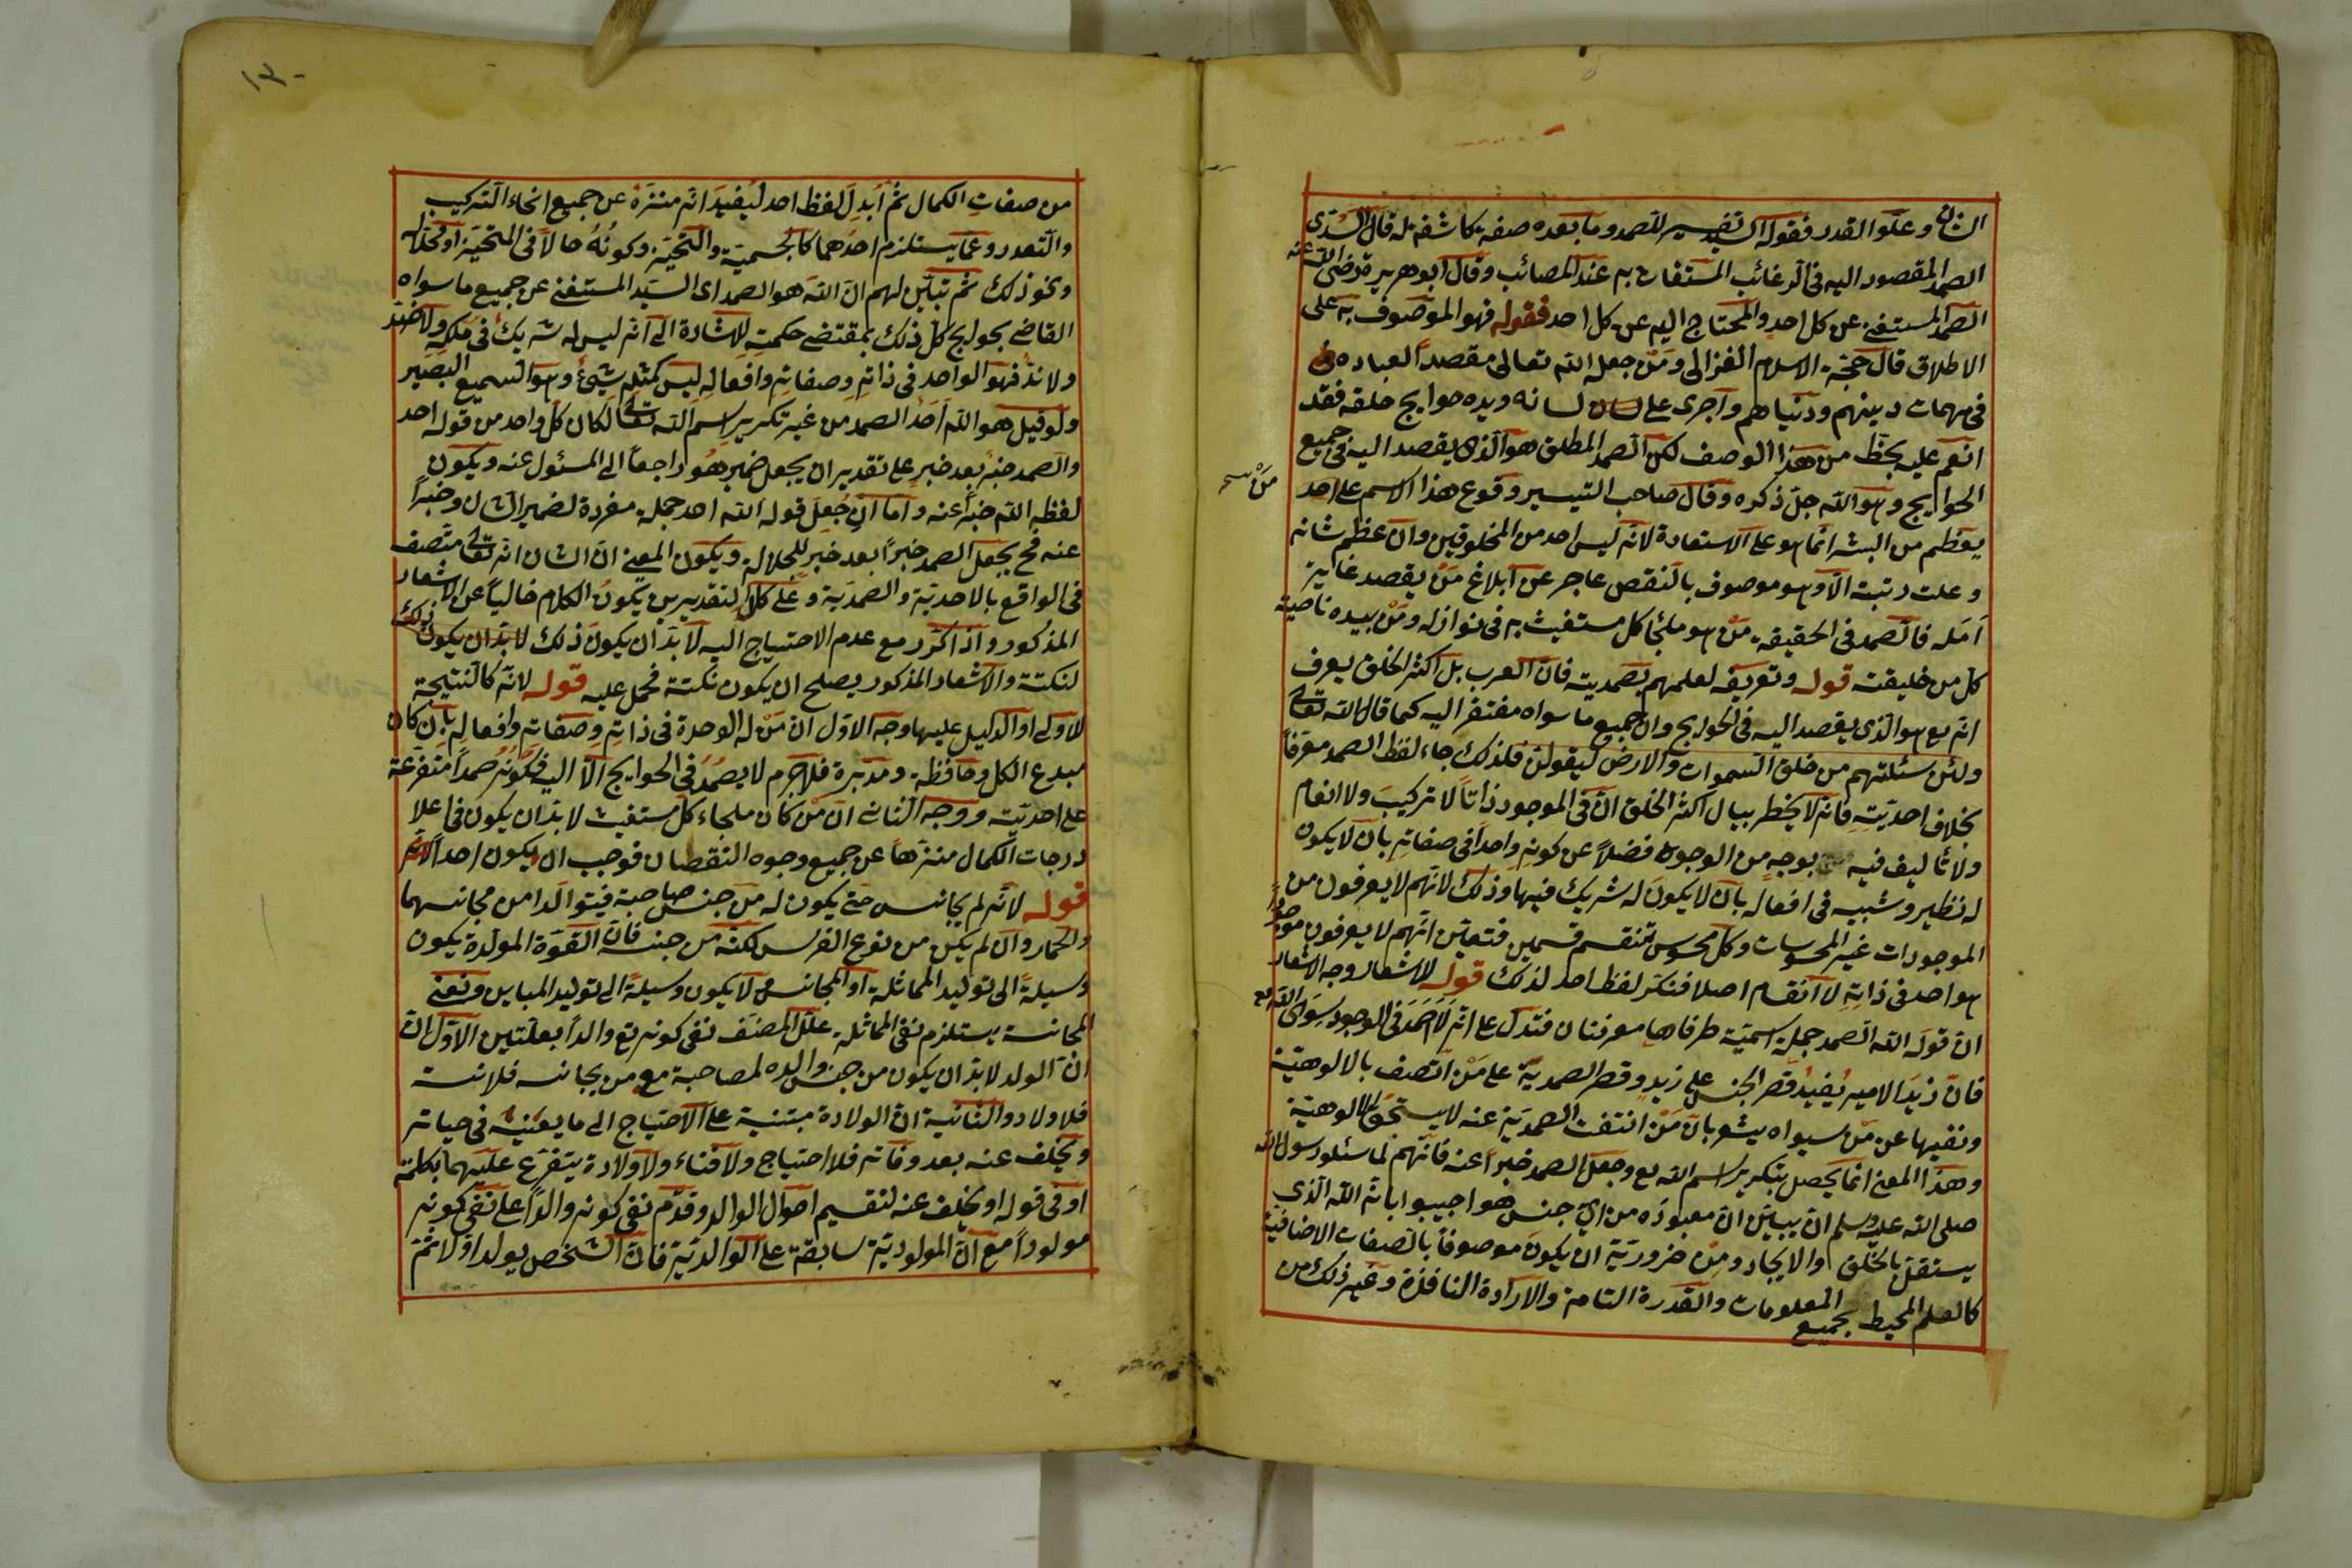 الشان وعلو القدر فقوله السيد تفسير للصمد وما بعده صفة كاشفة له قال السدى
الصمد المقصود اليه فى الرغائب المستغاث به عند المصائب وقال ابو هريرة رضى الله عنه
الصمد المستغنى عن كل احد والمحتاج اليه عن كل احد فقوله فهو الموصوف به على
الاطلاق قال حجة الاسلام الغزالى ومن جعله الله تعالى مقصد العباده
فى مهمات دينهم ودنياهم واجرى على لسانه ويده حوايج خلقه فقد
انعم عليه بحظ من هذا الوصف لكن الصمد المطلق هو الذى يقصد اليه فى جميع
الحوايج وهو الله جل ذكره وقال صاحب التيسير وقوع هذا الاسم على احد
يعظم من البشر انما هو على الاستعارة لانه ليس احد من المخلوقين وان عظم شانه
وعلت رتبته الا وهو موصوف بالنقص عاجز عن ابلاغ من يقصد غاية
امله فالصمد فى الحقيقة من هو ملجأ كل مستغيث به فى نوازله ومن بيده ناصية
كل من خليقته قوله وتعريفه لعلمهم بصمديته فان العرب بل اكثر الخلق يعرف
انه تع هو الذى يقصد اليه فى الحوايج وان جميع ما سواه مفتقر اليه كما قال الله تعالى
ولئن سئلتهم من خلق السموات والارض ليقولن فلذلك جاء لفظ الصمد معرفا
بخلاف احديته فانه لا يخطر ببال اكثر الخلق ان فى الموجود ذاتا لا تركيب ولا انقسام
ولا تأليف فيه بوجه من الوجوه فضلا عن كونه واحدا فى صفاته بان لا يكون
له نظير وشبيه فى افعاله بان لا يكون له شريك فيها وذلك لانهم لا يعرفون من
الموجودات غير المحسوسات وكل محسوس تنقسم قسمين فتعين انهم لا يعرفون موجودا
هو احد فى ذاته لا انقسام اصلا فنكر لفظ احد لذلك قوله للاشعار وجه الاشعار
ان قوله الله الصمد جملة اسمية طرفاها معرفتان فتدل على انه لا صمد فى الوجود سوى الله تع
فان زيد الامير يفيد قصر الجنس على زيد وقصر الصمدية على من اتصف بالالوهية
ونفيها عن من سيواه يشعر بان من انتفت الصمدية عنه لا يستحق الالوهية
وهذا المعنى انما يحصل بتكرير اسم الله تع وجعل الصمد خبرا عنه فانهم لما سئلو رسول الله
صلى الله عليه وسلم ان يبين ان معبوده من اى جنس هو اجيبوا بانه الله الذى
يستقل بالخلق والايجاد ومن ضرورية ان يكون موصوفا بالصفات الاضافية
كالعلم المحيط بجميع المعلومات والقدرة التامة والارادة النافذة وغير ذلك من
من صفات الكمال ثم ابدل لفظ احد ليفيد انه منزه عن جميع انحاء التركيب
والتعدد وعما يستلزم احدهما كالجسمية والتحيز وكونه حالا فى المتحيز او محلا له
ونحو ذلك ثم تبين لهم ان الله هو الصمد اى السيد المستغنى عن جميع ما سواه
القاضى بحوايج كل ذلك بمقتضى حكمته لاشارة الى انه ليس له شريك فى ملكه ولا ضد
ولا ند فهو الواحد فى ذاته وصفاته وافعاله ليس كمثله شئ وهو السميع البصير
ولو قيل هو الله احد الصمد من غير تكرير اسم الله تعالى لكان كل واحد من قوله احد
والصمد خبر بعد خبر على تقدير ان يجعل ضمير هو راجعا الى المسئول عنه ويكون
لفظة الله خبرا عنه واما ان جعل قوله الله احد جملة مفردة لضمير الشان وخبرا
عنه فح يجعل الصمد خبرا بعد خبر للجلالة ويكون المعنى ان الشان انه تعالى متصف
فى الواقع بالاحدية والصمدية وعلى كل التقديرين يكون الكلام خاليا عن الاشعار
المذكور واذا كرر مع عدم الاحتياج اليه لابد ان يكون ذلك لابد ان يكون ذلك
لنكتة والاشعار المذكور يصلح ان يكون نكتة فحمل عليه قوله لانه كالنتيجة
للاولى او الدليل عليها وجه الاول ان من له الوحدة فى ذاته وصفاته وافعاله بان كان
مبدع الكل وحافظه ومدبره فلاجرم لا يصمد فى الحوايج الا اليه فكونه صمدا متفرعة
على احديته ووجه الثانى ان من كان ملجاء كل مستغيث لابد ان يكون فى اعلا
درجات الكمال منزها عن جميع وجوه النقصان فوجب ان يكون احدا لانه
قوله لانه لم يجانس حتى يكون له من جنس صاحبة فيتوالدا من مجانسهما
والحمار وان لم يكن من نوع الفرس لكنه من جنسه فان القوة المولدة يكون
وسيلة الى توليد المماثلة او المجانس لا يكون وسيلة الى توليد المباين ونفى
المجانسة يستلزم نفى المماثلة علل المصنف نفى كونه تع والدا بعلتين الاول ان
ان الولد لابد ان يكون من جنس والده لمصاحبة مع من يجانسه فلانسة
فلا ولاد والثانية ان الولادة مبتنية على الاحتياج الى ما يعينه فى حياته
ويخلف عنه بعد وفاته فلا احتياج ولا فناء ولا ولادة يتفرع عليهما بكلمة
او فى قوله او يخلف عنه لتقسيم احوال الوالد وقدم نفى كونه والدا على نفى كونه
مولودا مع ان المولودية سابقة على الوالدية فان الشخص يولد اولا ثم